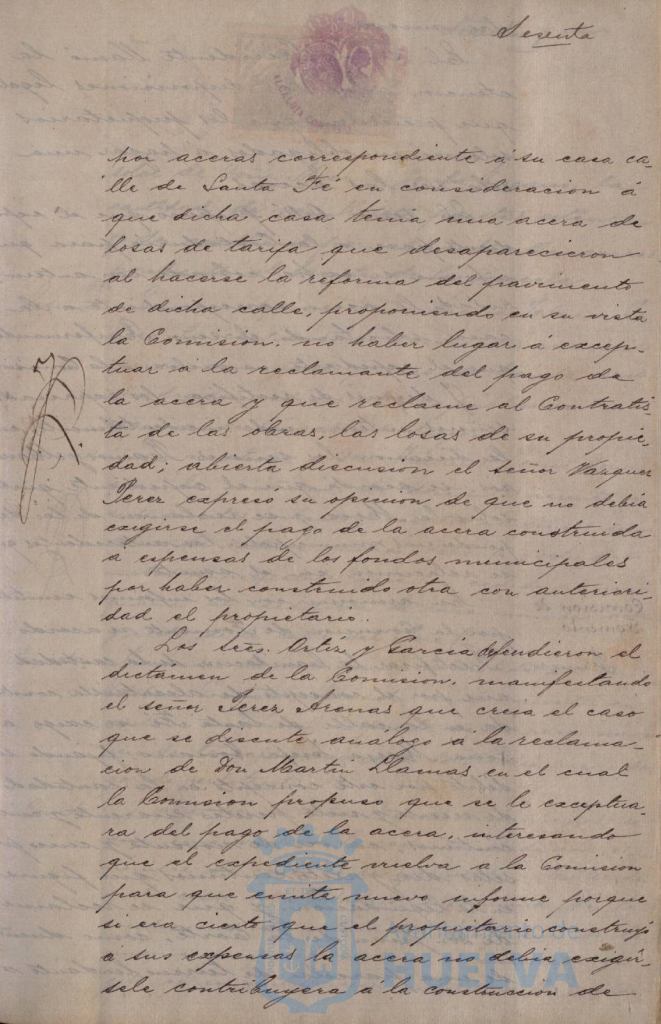 Sesenta
por aceras correspondiente á su casa ca-
lle de Santa Fé en consideracion á
que dicha casa tenia una acera de
losas de tarifa que desaparecieron
al hacerse la reforma del pavimento
de dicha calle, proponiendo en su vista
la Comision, no haber lugar á excep-
tuar á la reclamante del pago de
la acera y que reclame al Contratis-
ta de las obras, las losas de su propie-
dad; abierta discusion el señor Vazquez
Perez expresó su opinion de que no debia
exigirse el pago de la acera construida
á espensas de los fondos municipales
por haber construido otra con anteriori-
dad el propietario.
Los Sres. Ortiz y Garcia defendieron el
dictámen de la Comision, manifestando
el señor Perez Arenas que creia el caso
que se discute análogo á la reclama-
cion de Don Martin Llamas en el cual
la Comision propuso que se le exceptua-
ra del pago de la acera, interesando
que el expediente vuelva a la Comision
para que emita nuevo informe porque
si era cierto que el propietario construyó
á sus expensas la acera no debia exigir-
sele contribuyera á la construccion de
HUELVA